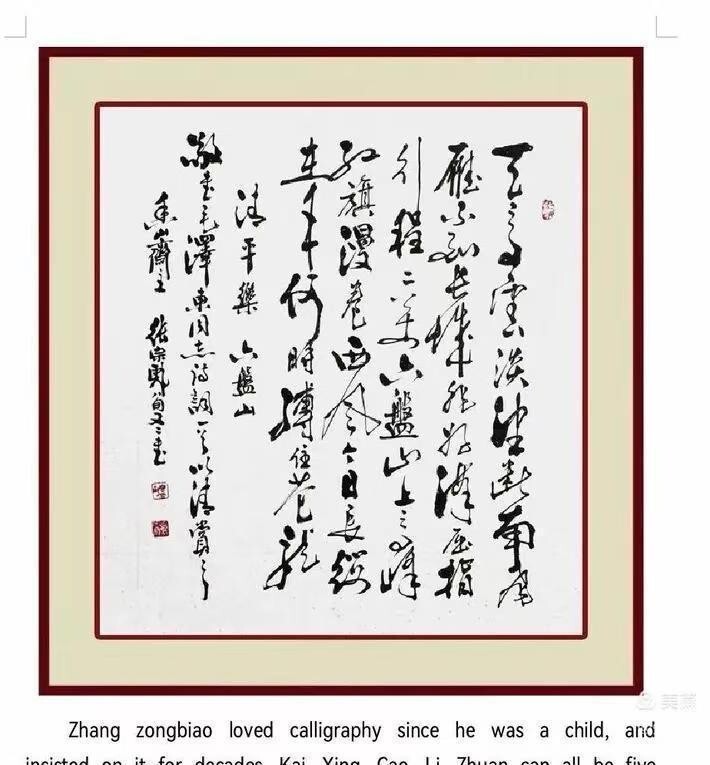 天高雲淡望斷南飛
雁不到長城非好漢屈指
行程二万六盤山上高峰
紅旗漫卷西風今日長纓
在手何時縛住蒼龍
清平樂 六盤山
敬書毛澤東同志詩詞一首以清賞之
香山齋主 張宗彪 書
美篇
Zhang zongbiao loved calligraphy since he was a child, and
insisted on it for decades. Kai, Xing, Cao, Li, Zhuan can all be five